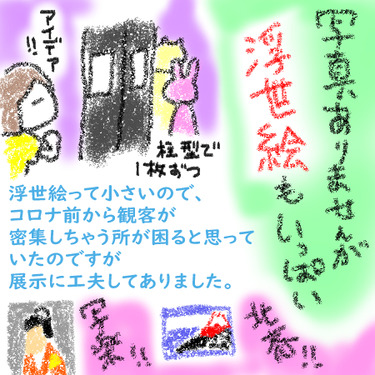 写真ありませんが
浮世絵
もいっぱい
アイデア!!
柱型で
1枚ずつ
浮世絵って小さいので、
コロナ前から観客が
密集しちゃう所が困ると思って
いたのですが
展示に工夫してありました。
写楽!!
北斎!!